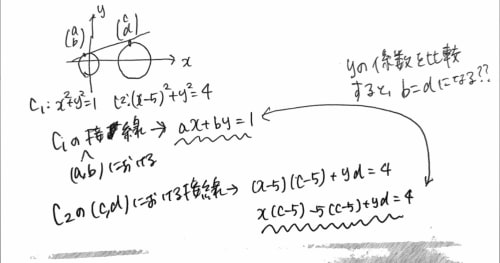 y
(a b) (c d)
x
C₁: x²+y²=1 C2:(x-5)²+y²=4
yの係数を比較
すると、b=dになる??
C₁の接線→ ax+by=1
(a,b)における
C₂の(c,d)における接線→ (x-5)(c-5)+yd=4
x(c-5)-5(c-5)+yd=4